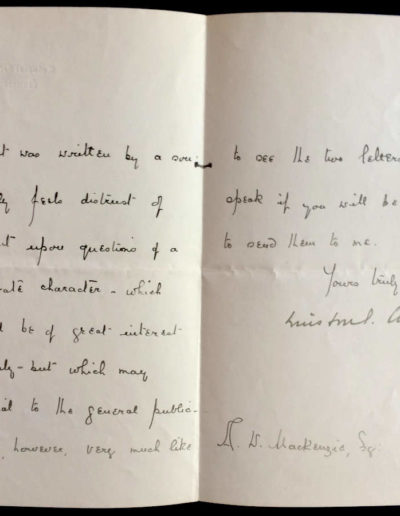 t was written by a son
ly feels distrust of
t upon questions of a
ate character - which
d be of great interest
ly - but which may
ial to the general public -
, however, very much like
to see the two letters
speak if you will be
to send them to me.
Yours truly
Winston S. C
A. D. Mackenzie, Sq.